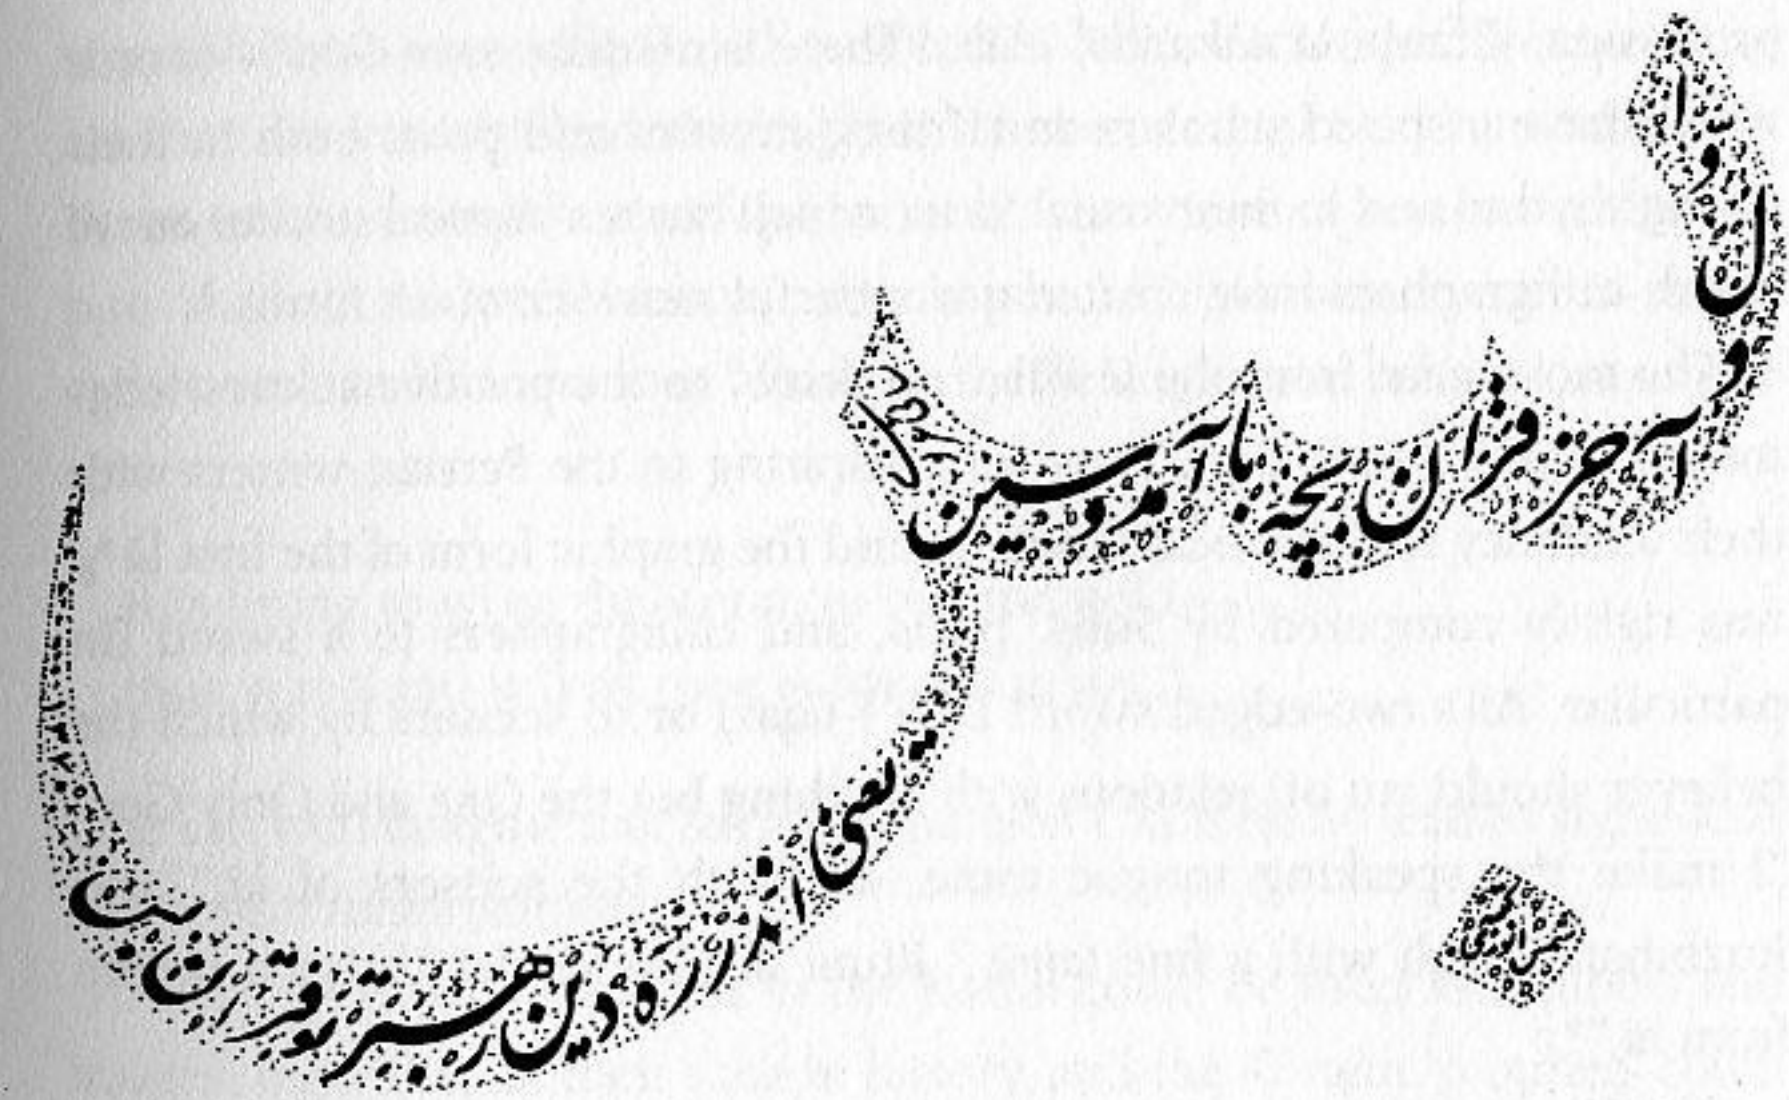 بس
اول و آخر قرآن بچه با آمد و سین
یعنی اندر ره دین رهبر تو قرآن بس